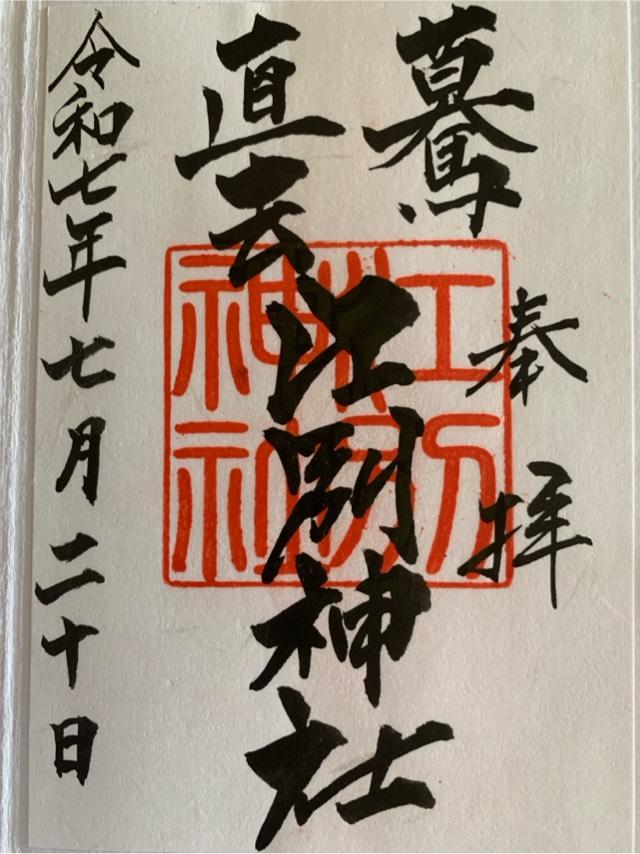 驀
直去
奉拝
江別神社
江別
神社
令和七年七月二十日